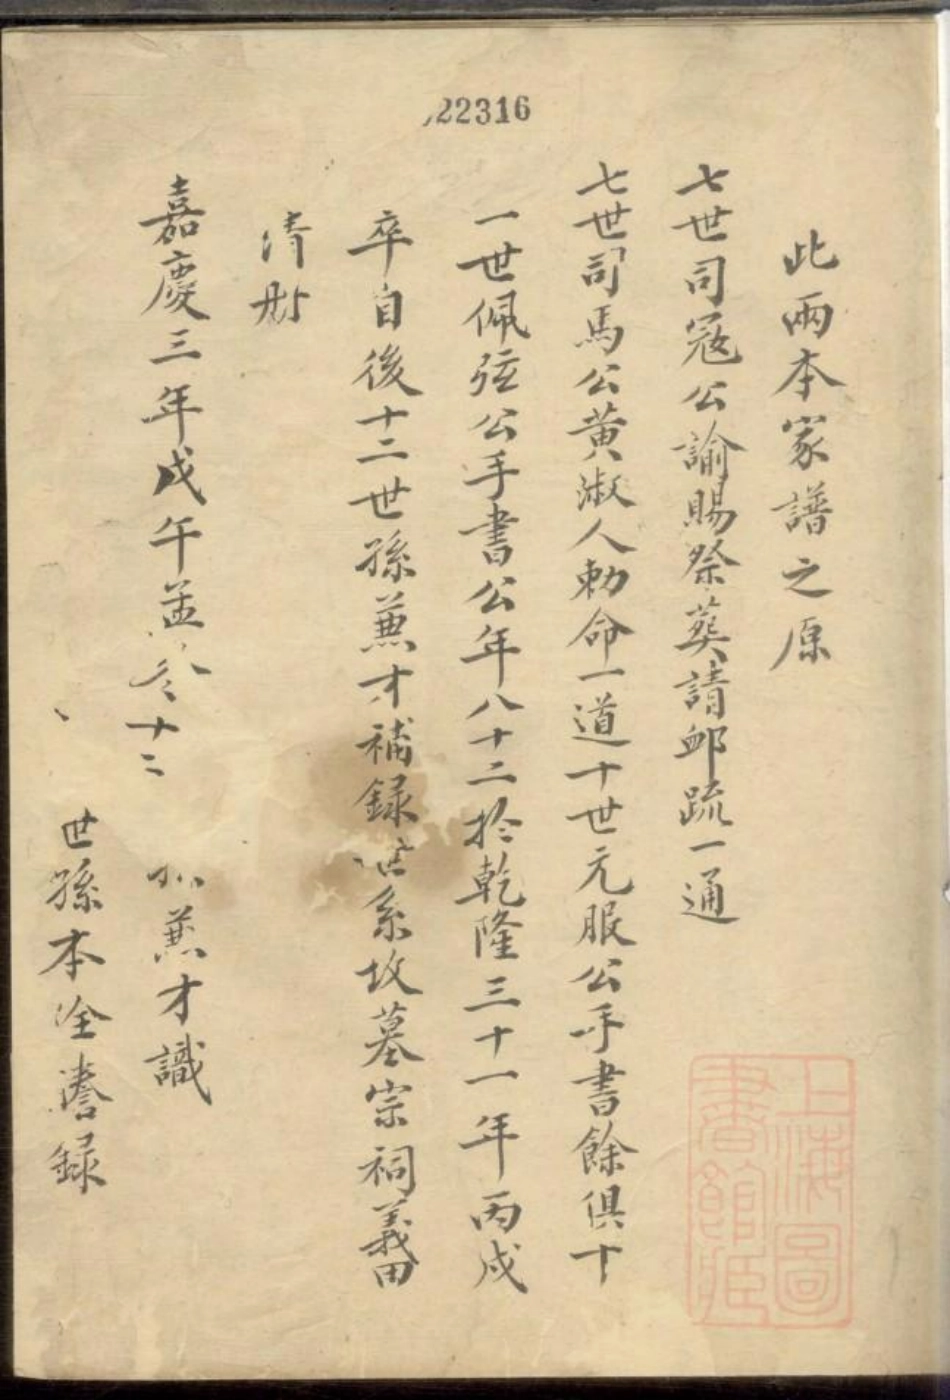 22316
此兩本家譜之原
七世司寇公諭賜祭葬請卹疏一通
七世司馬公黄淑人勅命一道十世元服公手書餘俱十
一世佩弦公手書公年八十二於乾隆三十一年丙戌
卒自後十二世孫蕙才補録世系坟墓宗祠義田
清册
嘉慶三年戊午孟冬十二 蕙才識
世孫本淦謄録
上海圖書館藏